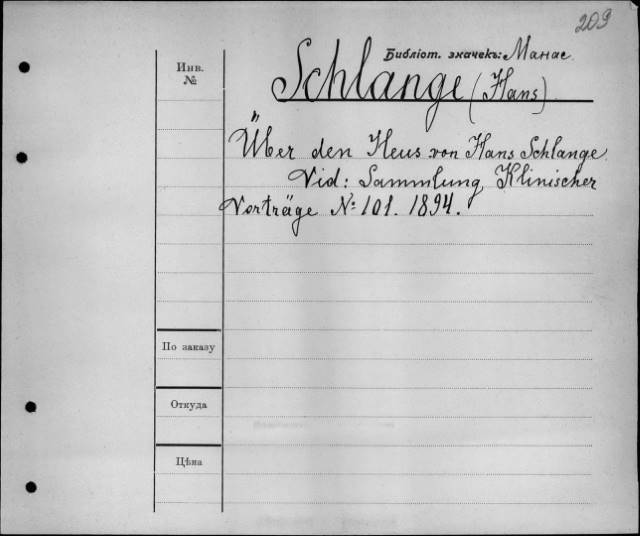 209
Библіот. значекъ: Манас.
Инв.
№
Schlange (Hans)
Über den Ileus von Hans Schlange.
Vid: Sammlung Klinischer
Vorträge № 101. 1894.
По заказу
Откуда
Цѣна